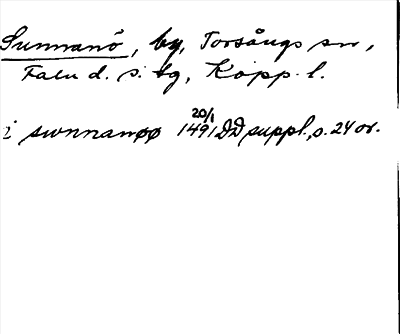 Sunnanö, by, Torsångs sn,
Falu d. s. bg, Kopp. l.
i swnnanøø 20/1 1491 DD suppl, s. 24 or.